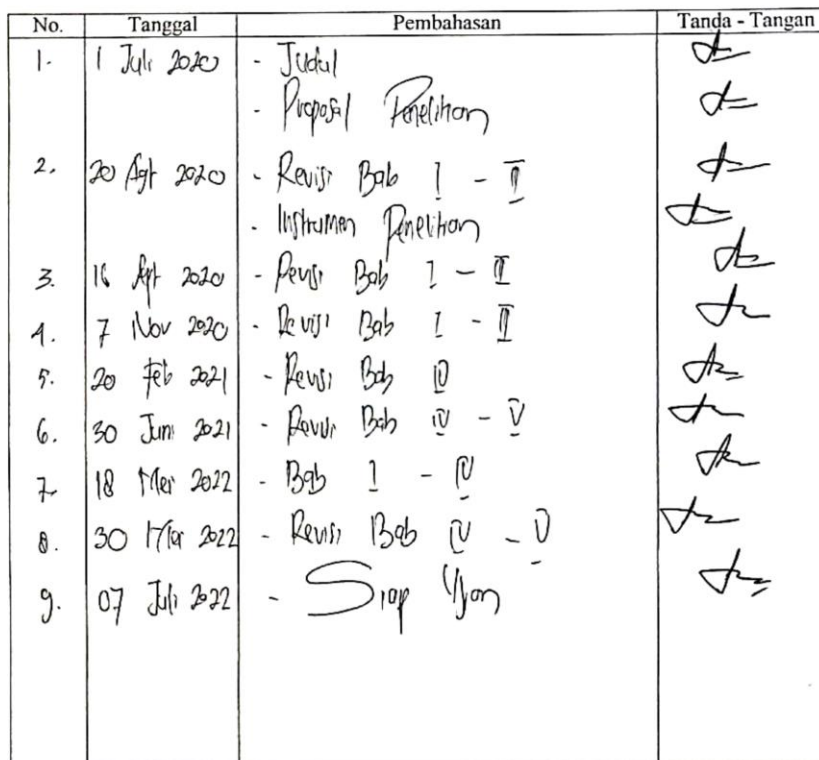 No. Tanggal Pembahasan Tanda - Tangan
1. 1 Juli 2020 - Judul
- Proposal Penelitian
2. 20 Agt 2020 - Revisi Bab I - II
- Instrumen Penelitian
3. 16 2020 - Revisi Bab I - III
4. 7 Nov 2020 - Revisi Bab I - III
5. 20 Feb 2021 - Revisi Bab IV
6. 30 Juni 2021 - Revisi Bab IV - V
7. 18 Mei 2022 - Bab I - IV
8. 30 Mei 2022 - Revisi Bab IV - V
9. 07 Juli 2022 - Siap Ujian